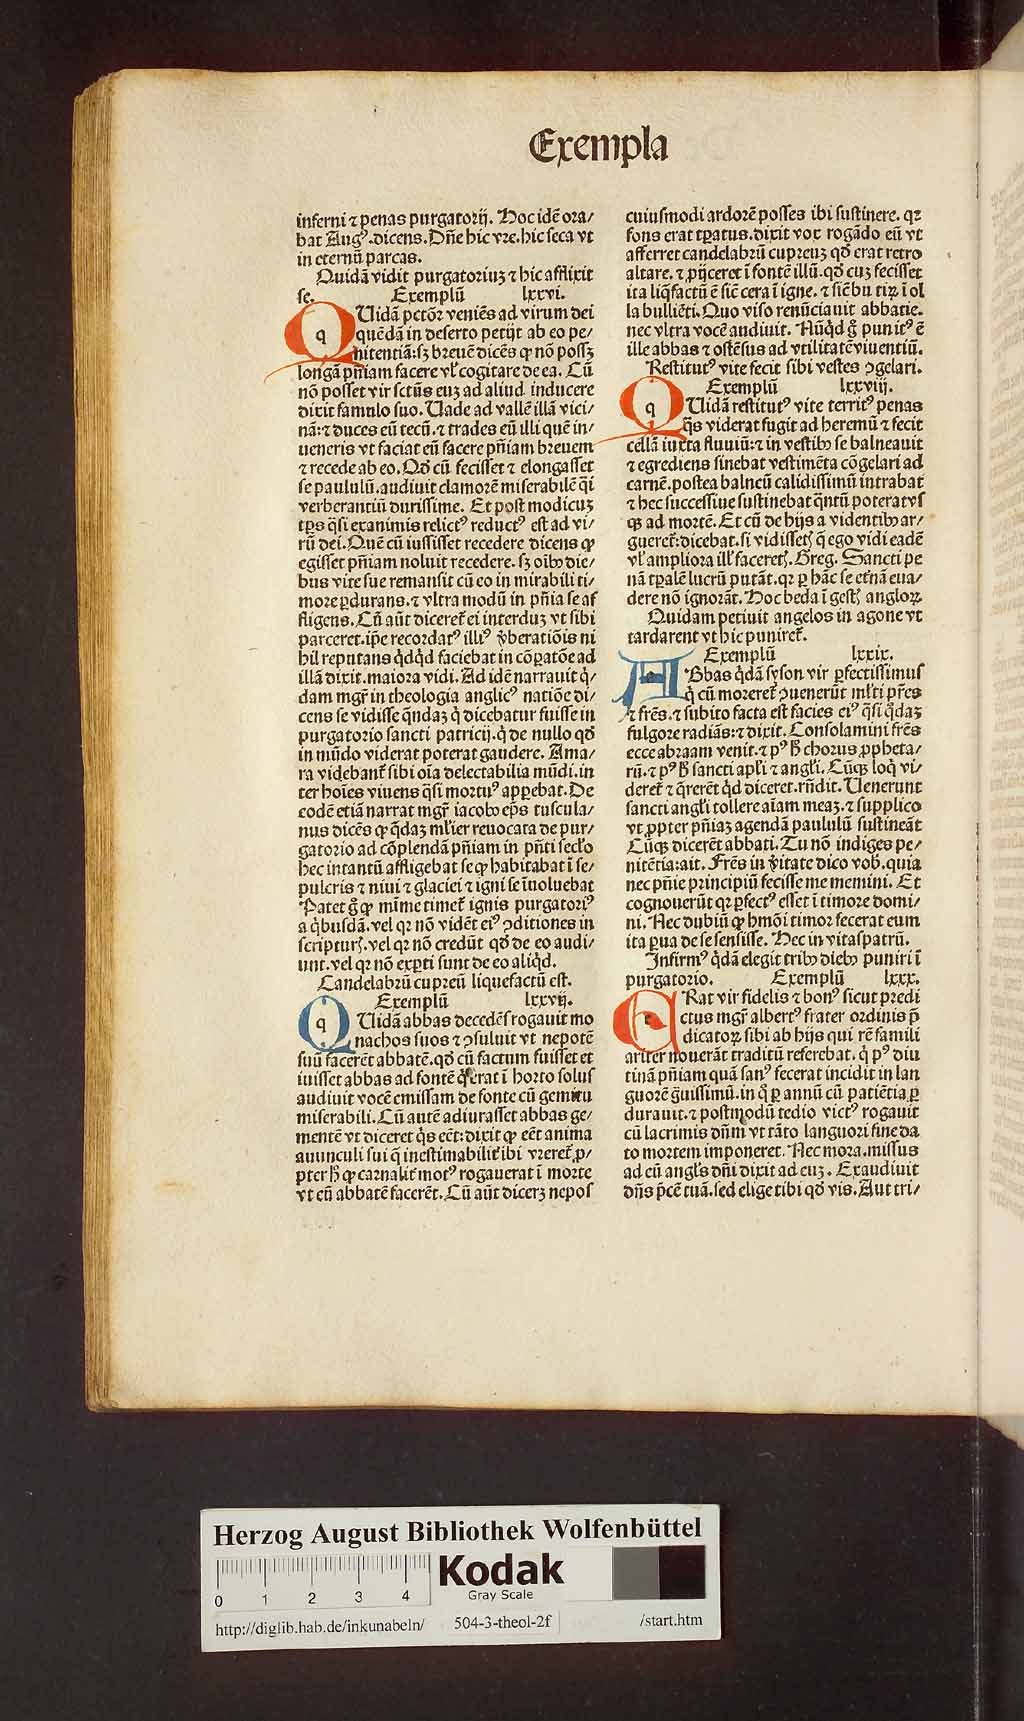 Exempla
inferni ⁊ penas purgatorij. Hoc idē ora/
bat Augꝰ.dicens.Dn̄e hic vre.hic seca vt
in eternū parcas.
Quidā vidit purgatoriuꝫ ⁊ hic afflixit
se. Exemplū lxxvi.
QUidā pctōr veniēs ad virum dei
quēdā in deserto petijt ab eo pe/
nitentiā:sꝫ breuē dicēs ꝙ nō possꝫ
longā pn̄iam facere vl̓ cogitare de ea. Cū
nō posset vir sctūs euꝫ ad aliud inducere
dixit famulo suo. Uade ad vallē illā vici/
nā:⁊ duces eū tecū.⁊ trades eū illi quē in/
ueneris vt faciat eū facere pn̄iam breuem
⁊ recede ab eo. Qd̓ cū fecisset ⁊ elongasset
se paululū.audiuit clamorē miserabilē q̄i
verberantiū durissime. Et post modicuꝫ
tp̄s q̄si exanimis relictꝰ reductꝰ est ad vi/
rū dei. Quē cū iussisset recedere dicens ꝙ
egisset pn̄iam noluit recedere. sꝫ oībꝰ die/
bus vite sue remansit cū eo in mirabili ti/
more ꝑdurans.⁊ vltra modū in pn̄ia se af
fligens. Cū aūt diceret̄ ei interduꝫ vt sibi
parceret.ip̄e recordatꝰ illiꝰ v̓beratiōis ni
hil reputans q̇dq̇d faciebat in cōꝑatōe ad
illā dixit.maiora vidi. Ad idē narrauit q̇/
dam mgr̄ in theologia anglicꝰ natiōe di/
cens se vidisse q̄ndaꝫ q̇ dicebatur fuisse in
purgatorio sancti patricij.q̇ de nullo qd̓
in mūdo viderat poterat gaudere. Ama/
ra videbant̄ sibi oīa delectabilia mūdi.in
ter hoīes viuens q̄si mortuꝰ apꝑebat. De
eodē etiā narrat mgr̄ iacobꝰ ep̄s tuscula/
nus dicēs ꝙ q̄daꝫ ml̓ier reuocata de pur/
gatorio ad cōplendā pn̄iam in pn̄ti sectō
hec intantū affligebat se ꝙ habitabat ī se/
pulcris ⁊ niui ⁊ glaciei ⁊ igni se īuoluebat
Patet g̊ ꝙ mīme timet̄ ignis purgatoriꝰ
a q̇busdā.vel qꝛ nō vidēt eiꝰ ꝯditiones in
scripturꝭ.vel qꝛ nō credūt qd̓ de eo audi/
unt.vel qꝛ nō exꝑti sunt de eo aliq̇d.
Candelabrū cupreū liquefactū est.
Exemplū lxxvij.
QUidā abbas decedēs rogauit mo
nachos suos ⁊ ꝯsuluit vt nepotē
suū facerēt abbatē.qd̓ cū factum fuisset et
iuisset abbas ad fontē q̇ erat ī horto solus
audiuit vocē emissam de fonte cū gemitu
miserabili. Cū autē adiurasset abbas ge/
mentē vt diceret q̇s eēt:dixit ꝙ eēt anima
auunculi sui q̄ inestimabilit̓ ibi vreret̄.ꝓ/
pter h̓ ꝙ carnalit̓ motꝰ rogauerat ī morte
vt eū abbatē facerēt. Cū aūt dicerꝫ nepos
cuiusmodi ardorē posses ibi sustinere. qꝛ
fons erat tꝑatus.dixit vox rogādo eū vt
afferret candelabrū cupreuꝫ qd̓ erat retro
altare.⁊ ꝓijceret ī fontē illū.qd̓ cuꝫ fecisset
ita liq̄factū ē sic̄ cera ī igne.⁊ sic̄ butiꝝ ī ol
la bulliēti. Quo viso renūciauit abbatie.
nec vltra vocē audiuit. Nūqd̓ g̊ punitꝰ ē
ille abbas ⁊ ostēsus ad vtilitatē viuentiū.
Restitutꝰ vite fecit sibi vestes ꝯgelari.
Exemplū lxxviij.
QUidā restitutꝰ vite territꝰ penas
q̄s viderat fugit ad heremū ⁊ fecit
cellā iuxta fluuiū:⁊ in vestibꝰ se balneauit
⁊ egrediens sinebat vestimēta cōgelari ad
carnē.postea balneū calidissimū intrabat
⁊ hec successiue sustinebat q̄ntū poterat vs
qꝫ ad mortē. Et cū de hijs a videntibꝰ ar/
gueret̄:dicebat.si vidissetꝭ q̄ ego vidi eadē
vl̓ ampliora ill̓ faceretꝭ. Greg. Sancti pe
nā tꝑalē lucrū putāt.qꝛ ꝑ hāc se et̄nā eua/
dere nō ignorāt. Hoc beda ī gestꝭ angloꝝ.
Quidam petiuit angelos in agone vt
tardarent vt hic puniret̄.
Exemplū lxxix.
ABbas q̇dā syson vir ꝑfectissimus
q̇ cū moreret̄ ꝯuenerūt ml̓ti pr̄es
⁊ fr̄es.⁊ subito facta est facies eiꝰ q̄si q̇daꝫ
fulgore radiās:⁊ dixit. Consolamini fr̄es
ecce abraam venit.⁊ pꝰ h̓ chorus ꝓpheta/
rū.⁊ pꝰ h̓ sancti apl̓i ⁊ angl̓i. Cūqꝫ loq̇ vi/
deret̄ ⁊ q̄rerēt q̇d diceret.rn̄dit. Uenerunt
sancti angl̓i tollere aīam meaꝫ.⁊ supplico
vt ꝓpter pn̄iaꝫ agendā paululū sustineāt
Cūqꝫ dicerēt abbati. Tu nō indiges pe/
nitētia:ait. Fr̄es in v̓itate dico vob̓.quia
nec pn̄ie principiū fecisse me memini. Et
cognouerūt qꝛ ꝑfectꝰ esset ī timore domi/
ni. Nec dubiū ꝙ hm̄oi timor fecerat eum
ita ꝑua de se sensisse. Hec in vitaspatrū.
Infirmꝰ q̇dā elegit tribꝰ diebꝰ puniri ī
purgatorio. Exemplū lxxx.
ERat vir fidelis ⁊ bonꝰ sicut predi
ctus mgr̄ albertꝰ frater ordinis p̄
dicatoꝝ sibi ab hijs qui rē famili
ariter nouerāt traditū referebat. q̇ pꝰ diu
tinā pn̄iam quā sanꝰ fecerat incidit in lan
guorē g̓uissimū.in q̇ ꝑ annū cū patiētia ꝑ
durauit.⁊ postmodū tedio victꝰ rogauit
cū lacrimis dn̄m vt tāto languori fine da
to mortem imponeret. Nec mora.missus
ad eū angl̓s dn̄i dixit ad euꝫ. Exaudiuit
dn̄s p̄cē tuā.sed elige tibi qd̓ vis. Aut tri/
Herzog August Bibliothek Wolfenbüttel
0 1 2 3 4
Kodak
Gray Scale
http://diglib.hab.de/inkunabeln/ 504-3-theol-2f /start.htm